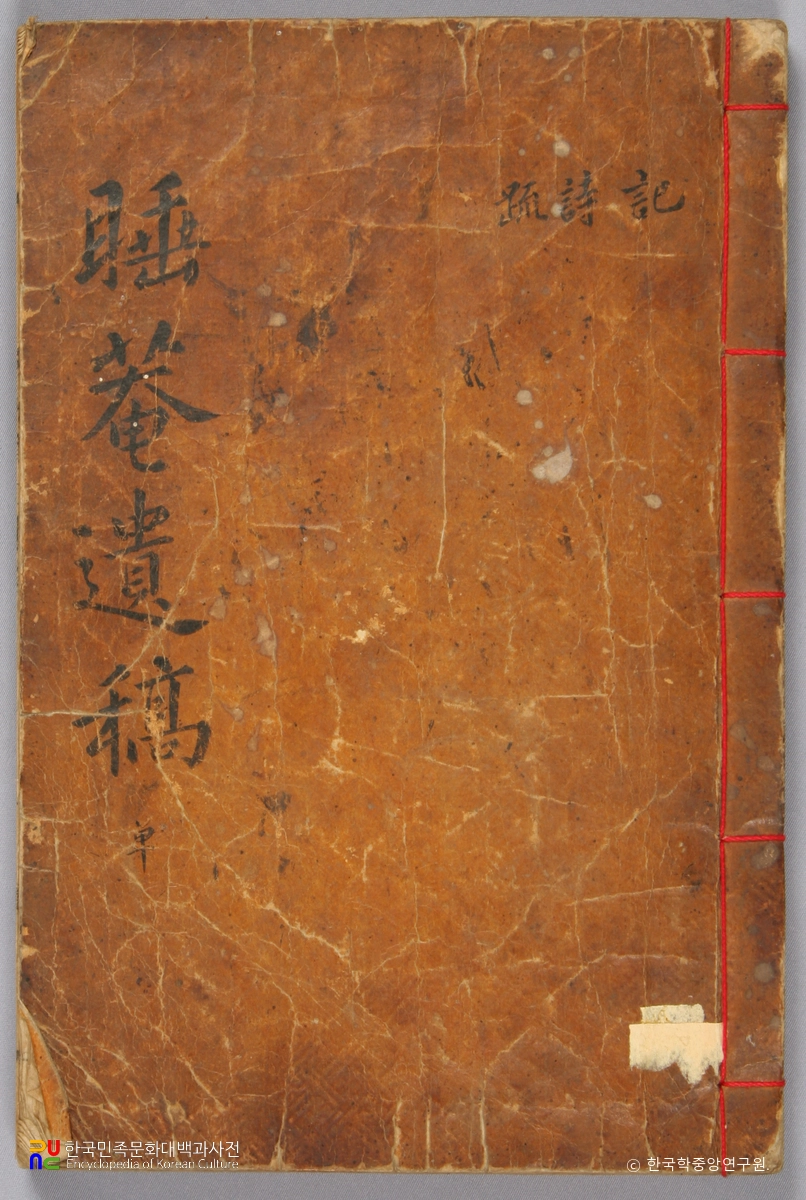 睡菴遺稿
単
記詩疏
한국민족문화대백과사전
Encyclopedia of Korean Culture
© 한국학중앙연구원